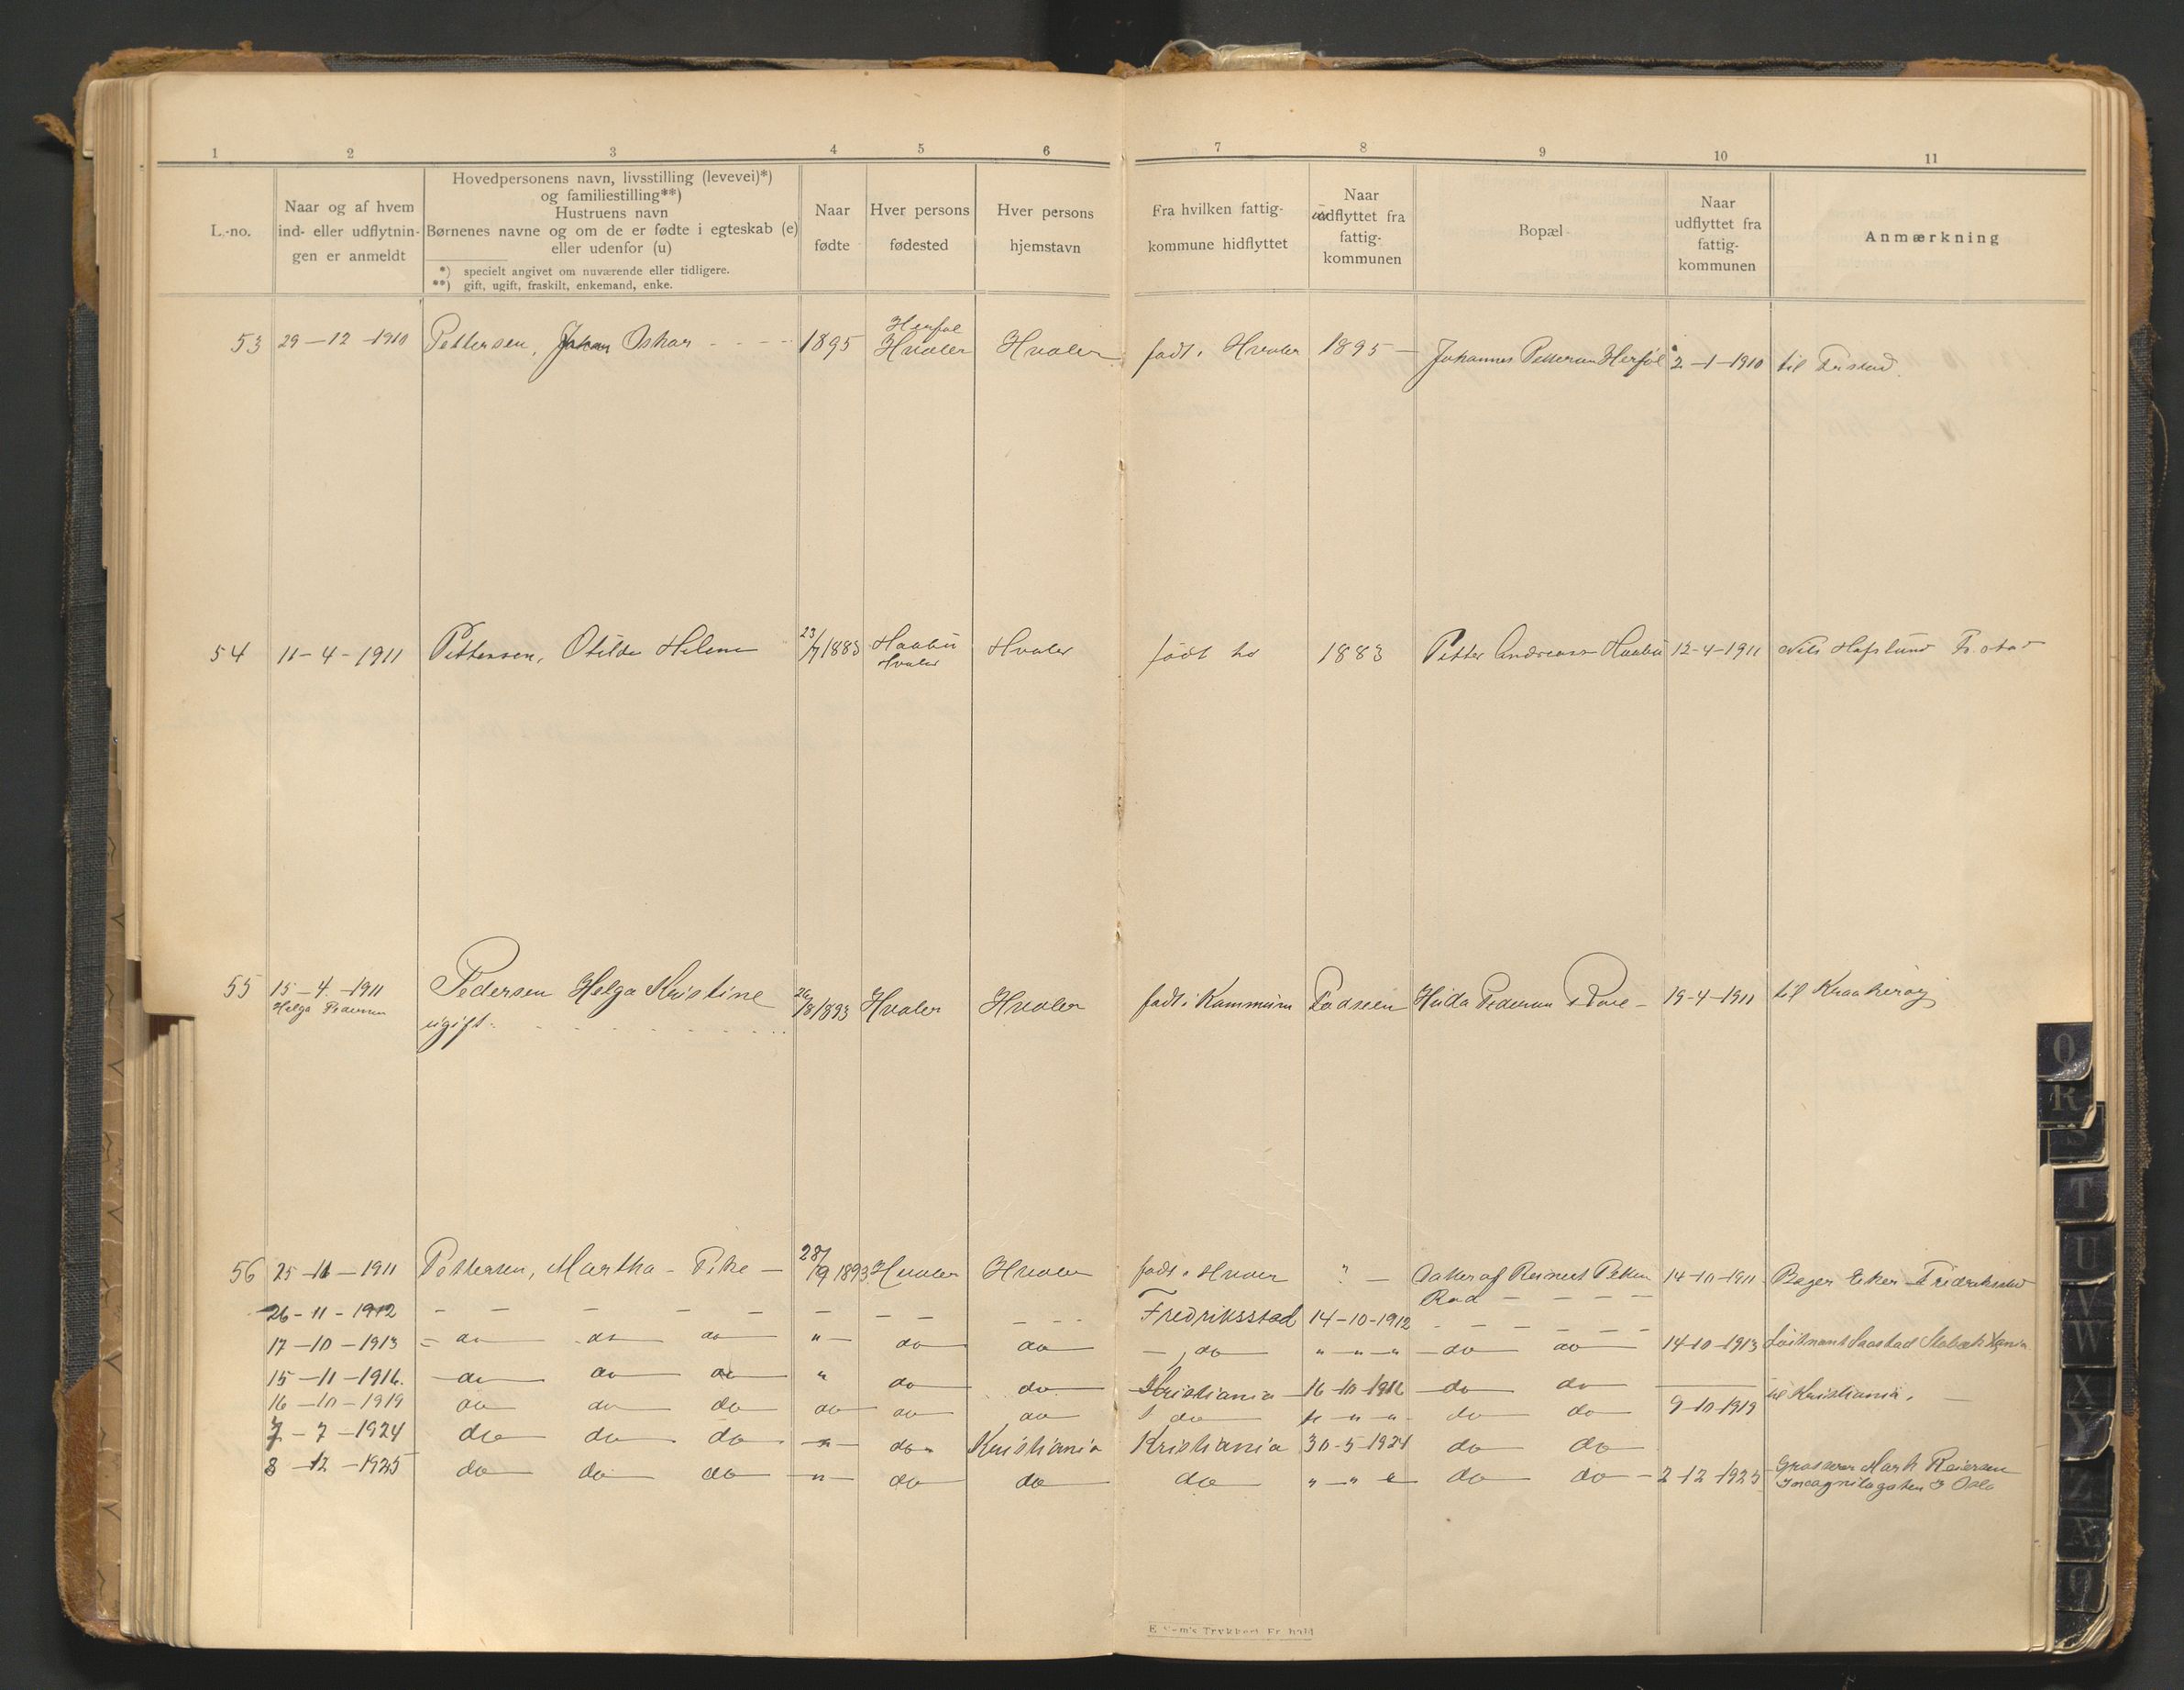 1 2 3 4 5 6 7 8 9 10 11
L.-no.
Naar og af hvem
ind- eller udflytnin-
gen er anmeldt
Hovedpersonens navn, livsstilling (levevei)*)
og familiestilling**)
Hustruens navn
Børnenes navne og om de er fødte i egteskab (e)
eller udenfor (u)
*) specielt angivet om nuværende eller tidligere.
**) gift, ugift, fraskilt, enkemand, enke.
Naar
fødte
Hver persons
fødested
Hver persons
hjemstavn
Fra hvilken fattig-
kommune hidflyttet
Naar
indflyttet fra
fattig-
kommunen
Bopæl
Naar
udflyttet fra
fattig-
kommunen
Anmærkning
Herføl
53 29-12-1910 Pettersen, Johan Oskar - - - - 1895 Hvaler Hvaler født i Hvaler 1895 - Johannes Pettersen Herføl 2-1-1910 til Fr.stad
54 11-4-1911 Pettersen, Otilde Helene 23/7 1883 Haabu Hvaler født do 1883 Petter Andreasen Haabu 12-4-1911 Nils Hafslund Fr.stad
Hvaler
55 15-4-1911 Pedersen Helga Kristine 26/8 1893 Hvaler Hvaler født i Kommunen Pedersen 19-4-1911 til Kraakerøy
Helga Pedersen ugift.
56 25-11-1911 Pettersen, Martha - Pike - 28/9 1893 Hvaler Hvaler født i Hvaler " - Datter af Reinert Petters 14-10-1911 Bager Eker Fredrikstad
Rød - - - -
26-11-1912 - - - - - - - - - - Fredriksstad 14-10-1912 - - - - - -
17-10-1913 - do do do " - do do - do " - " - " - do do 14-10-1913 Løitnant Stabæk Kr.ania
15-11-1916. do do do " do do Kristiania 16-10-1916 do do
16-10-1919 do do do do do do do " - " - " do do 9-10-1919 til Kristiania. -
7-7-1924 do do do " do " Kristiania Kristiania 30-5-1924 do do
8-12-1925 do do do " do do do " - " do do - 2-12-1925 Grosserer Mark Reiersen
Incognitogaten 3 Oslo
Q
R
S
T
U
V
W
X
Y
Z
Æ
Ø